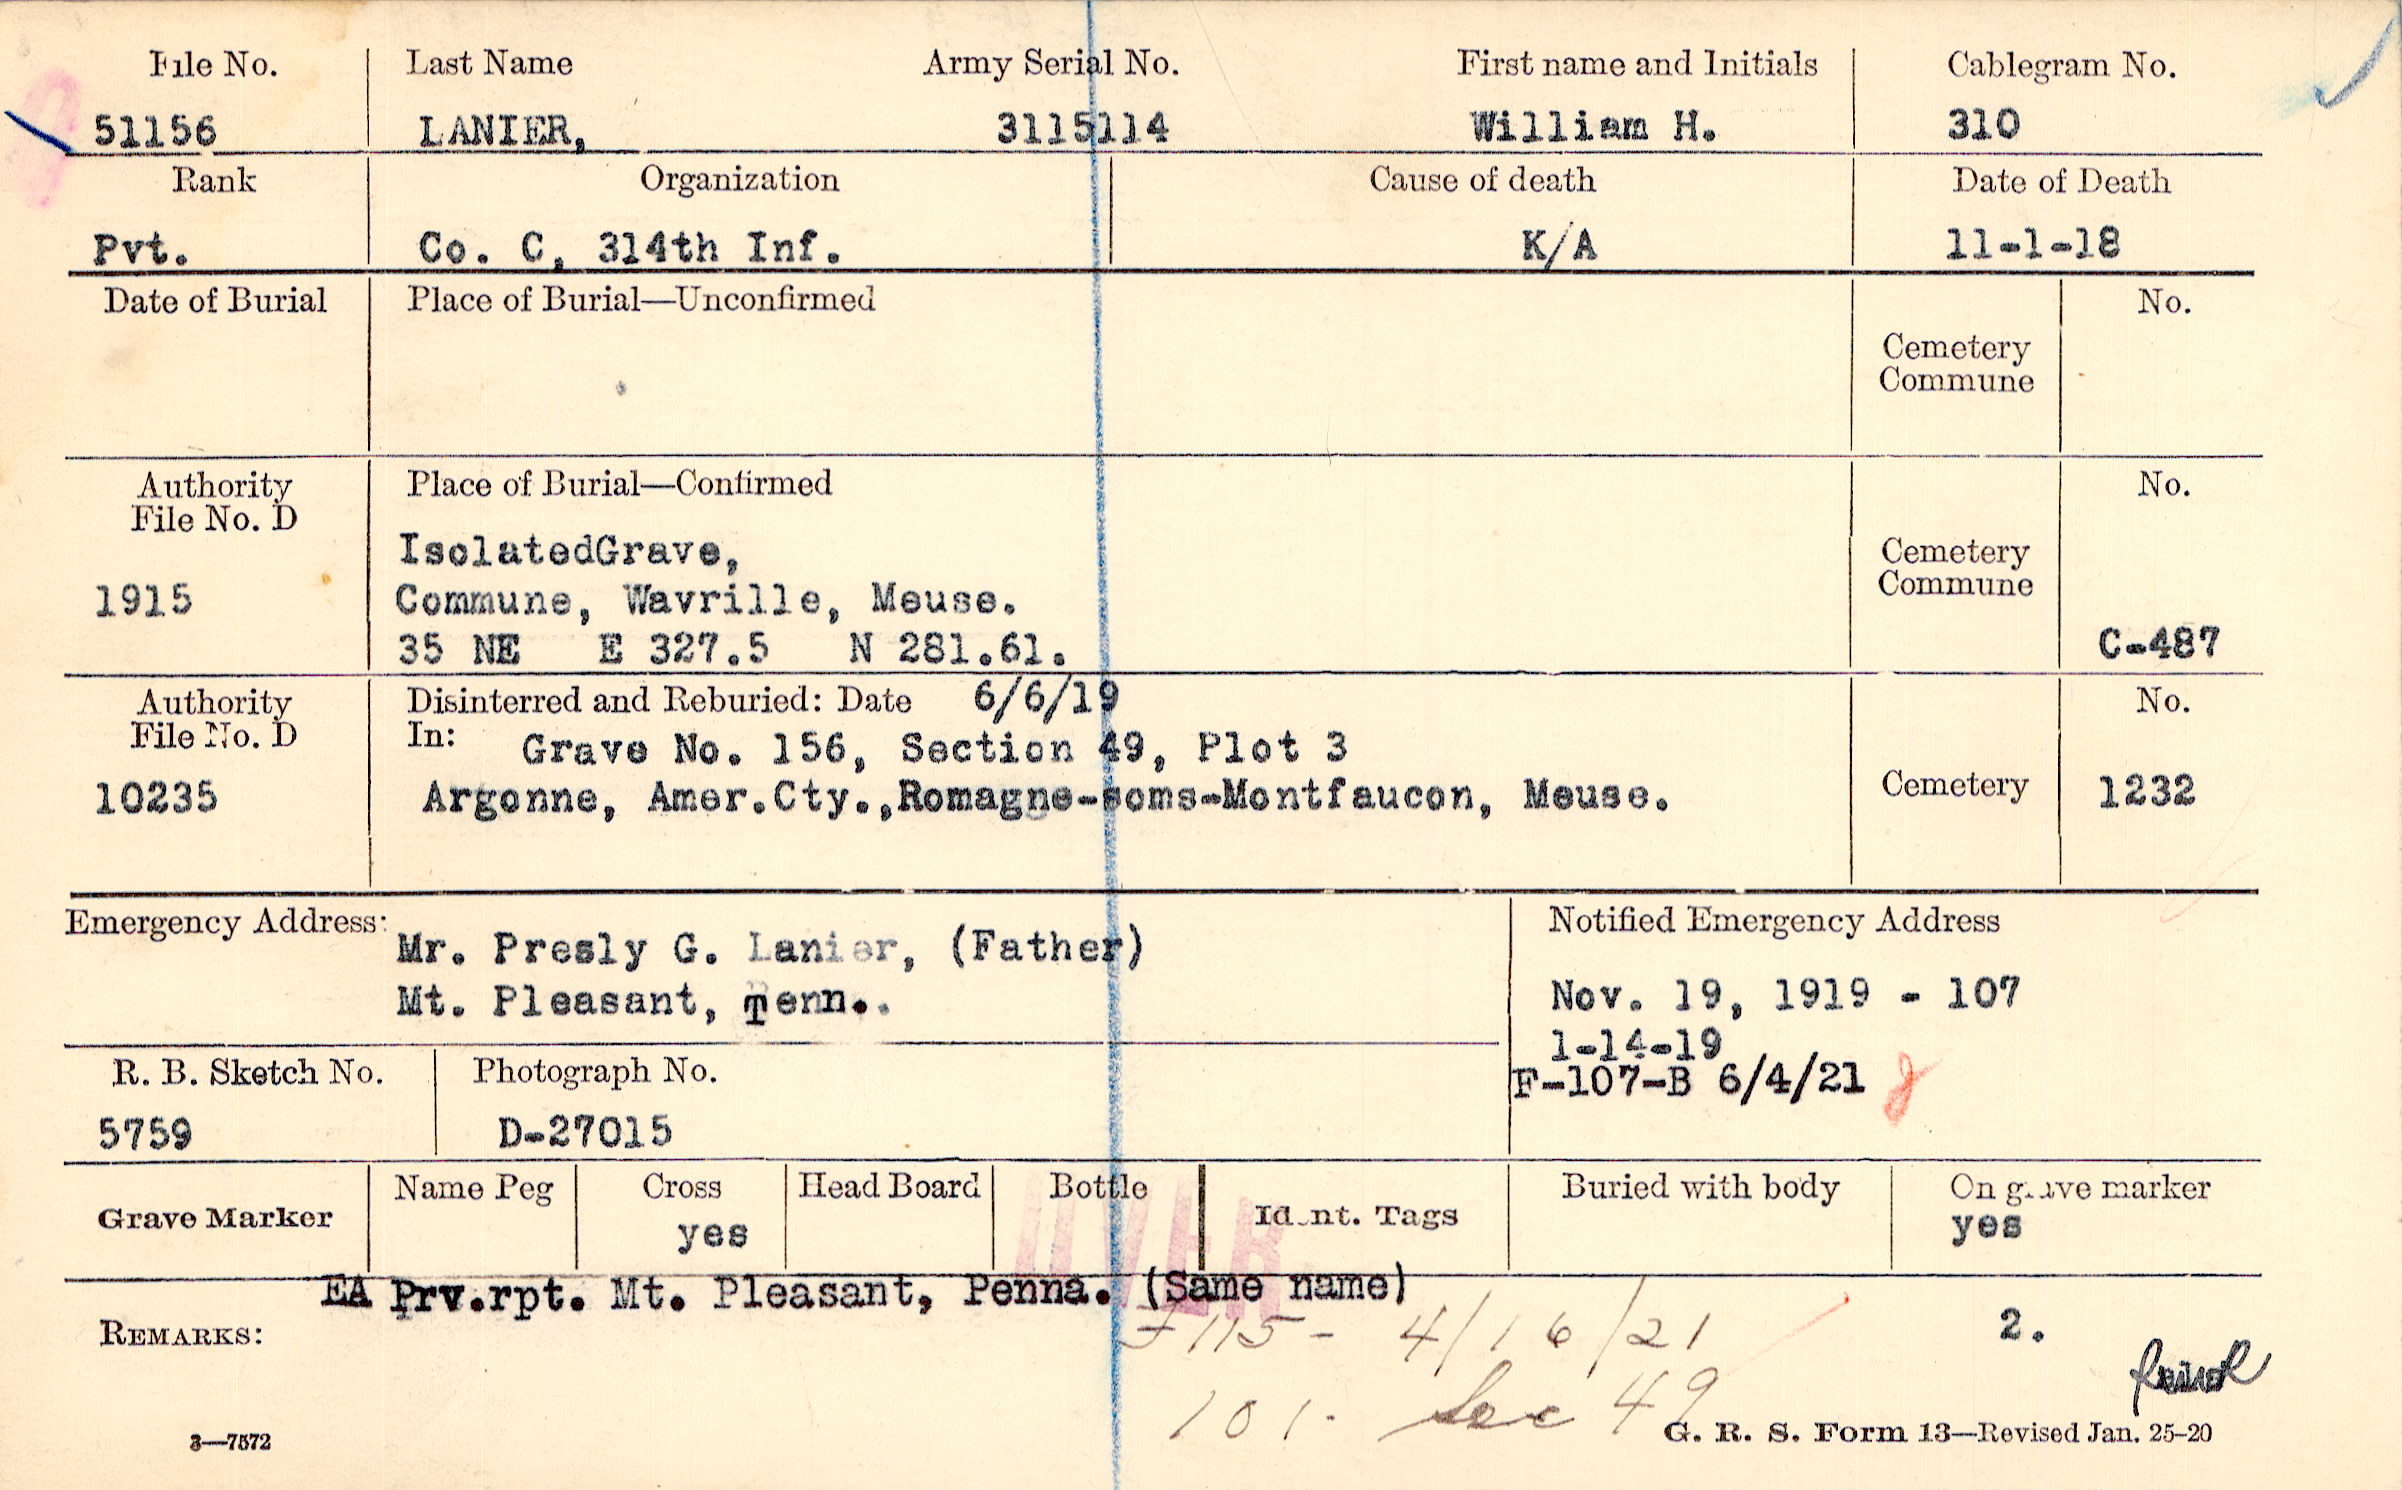 File No. Last Name Army Serial No. First name and Initials Cablegram No.
51156 LANIER, 3115114 William H. 310
Rank Organization Cause of death Date of Death
Pvt. Co. C, 314th Inf. K/A 11-1-18
Date of Burial Place of Burial—Unconfirmed No.
Cemetery
Commune
Authority Place of Burial—Confirmed No.
File No. D
IsolatedGrave,
Cemetery
Commune
1915 Commune, Wavrille, Meuse.
35 NE E 327.5 N 281.61. C-487
Authority Disinterred and Reburied: Date 6/6/19 No.
File No. D In: Grave No. 156, Section 49, Plot 3
10235 Argonne, Amer.Cty.,Romagne-soms-Montfaucon, Meuse. Cemetery 1232
Emergency Address: Notified Emergency Address
Mr. Presly G. Lanier, (Father)
Mt. Pleasant, Tenn.. Nov. 19, 1919 - 107
1-14-19
R. B. Sketch No. Photograph No. F-107-B 6/4/21
5759 D-27015
Name Peg Cross Head Board Bottle Buried with body On grave marker
Grave Marker yes Ident. Tags yes
OVER
EA Prv.rpt. Mt. Pleasant, Penna. (Same name)
REMARKS: 115- 4/16/21 2.
101. Sec 49
3—7572 G. R. S. Form 13—Revised Jan. 25-20